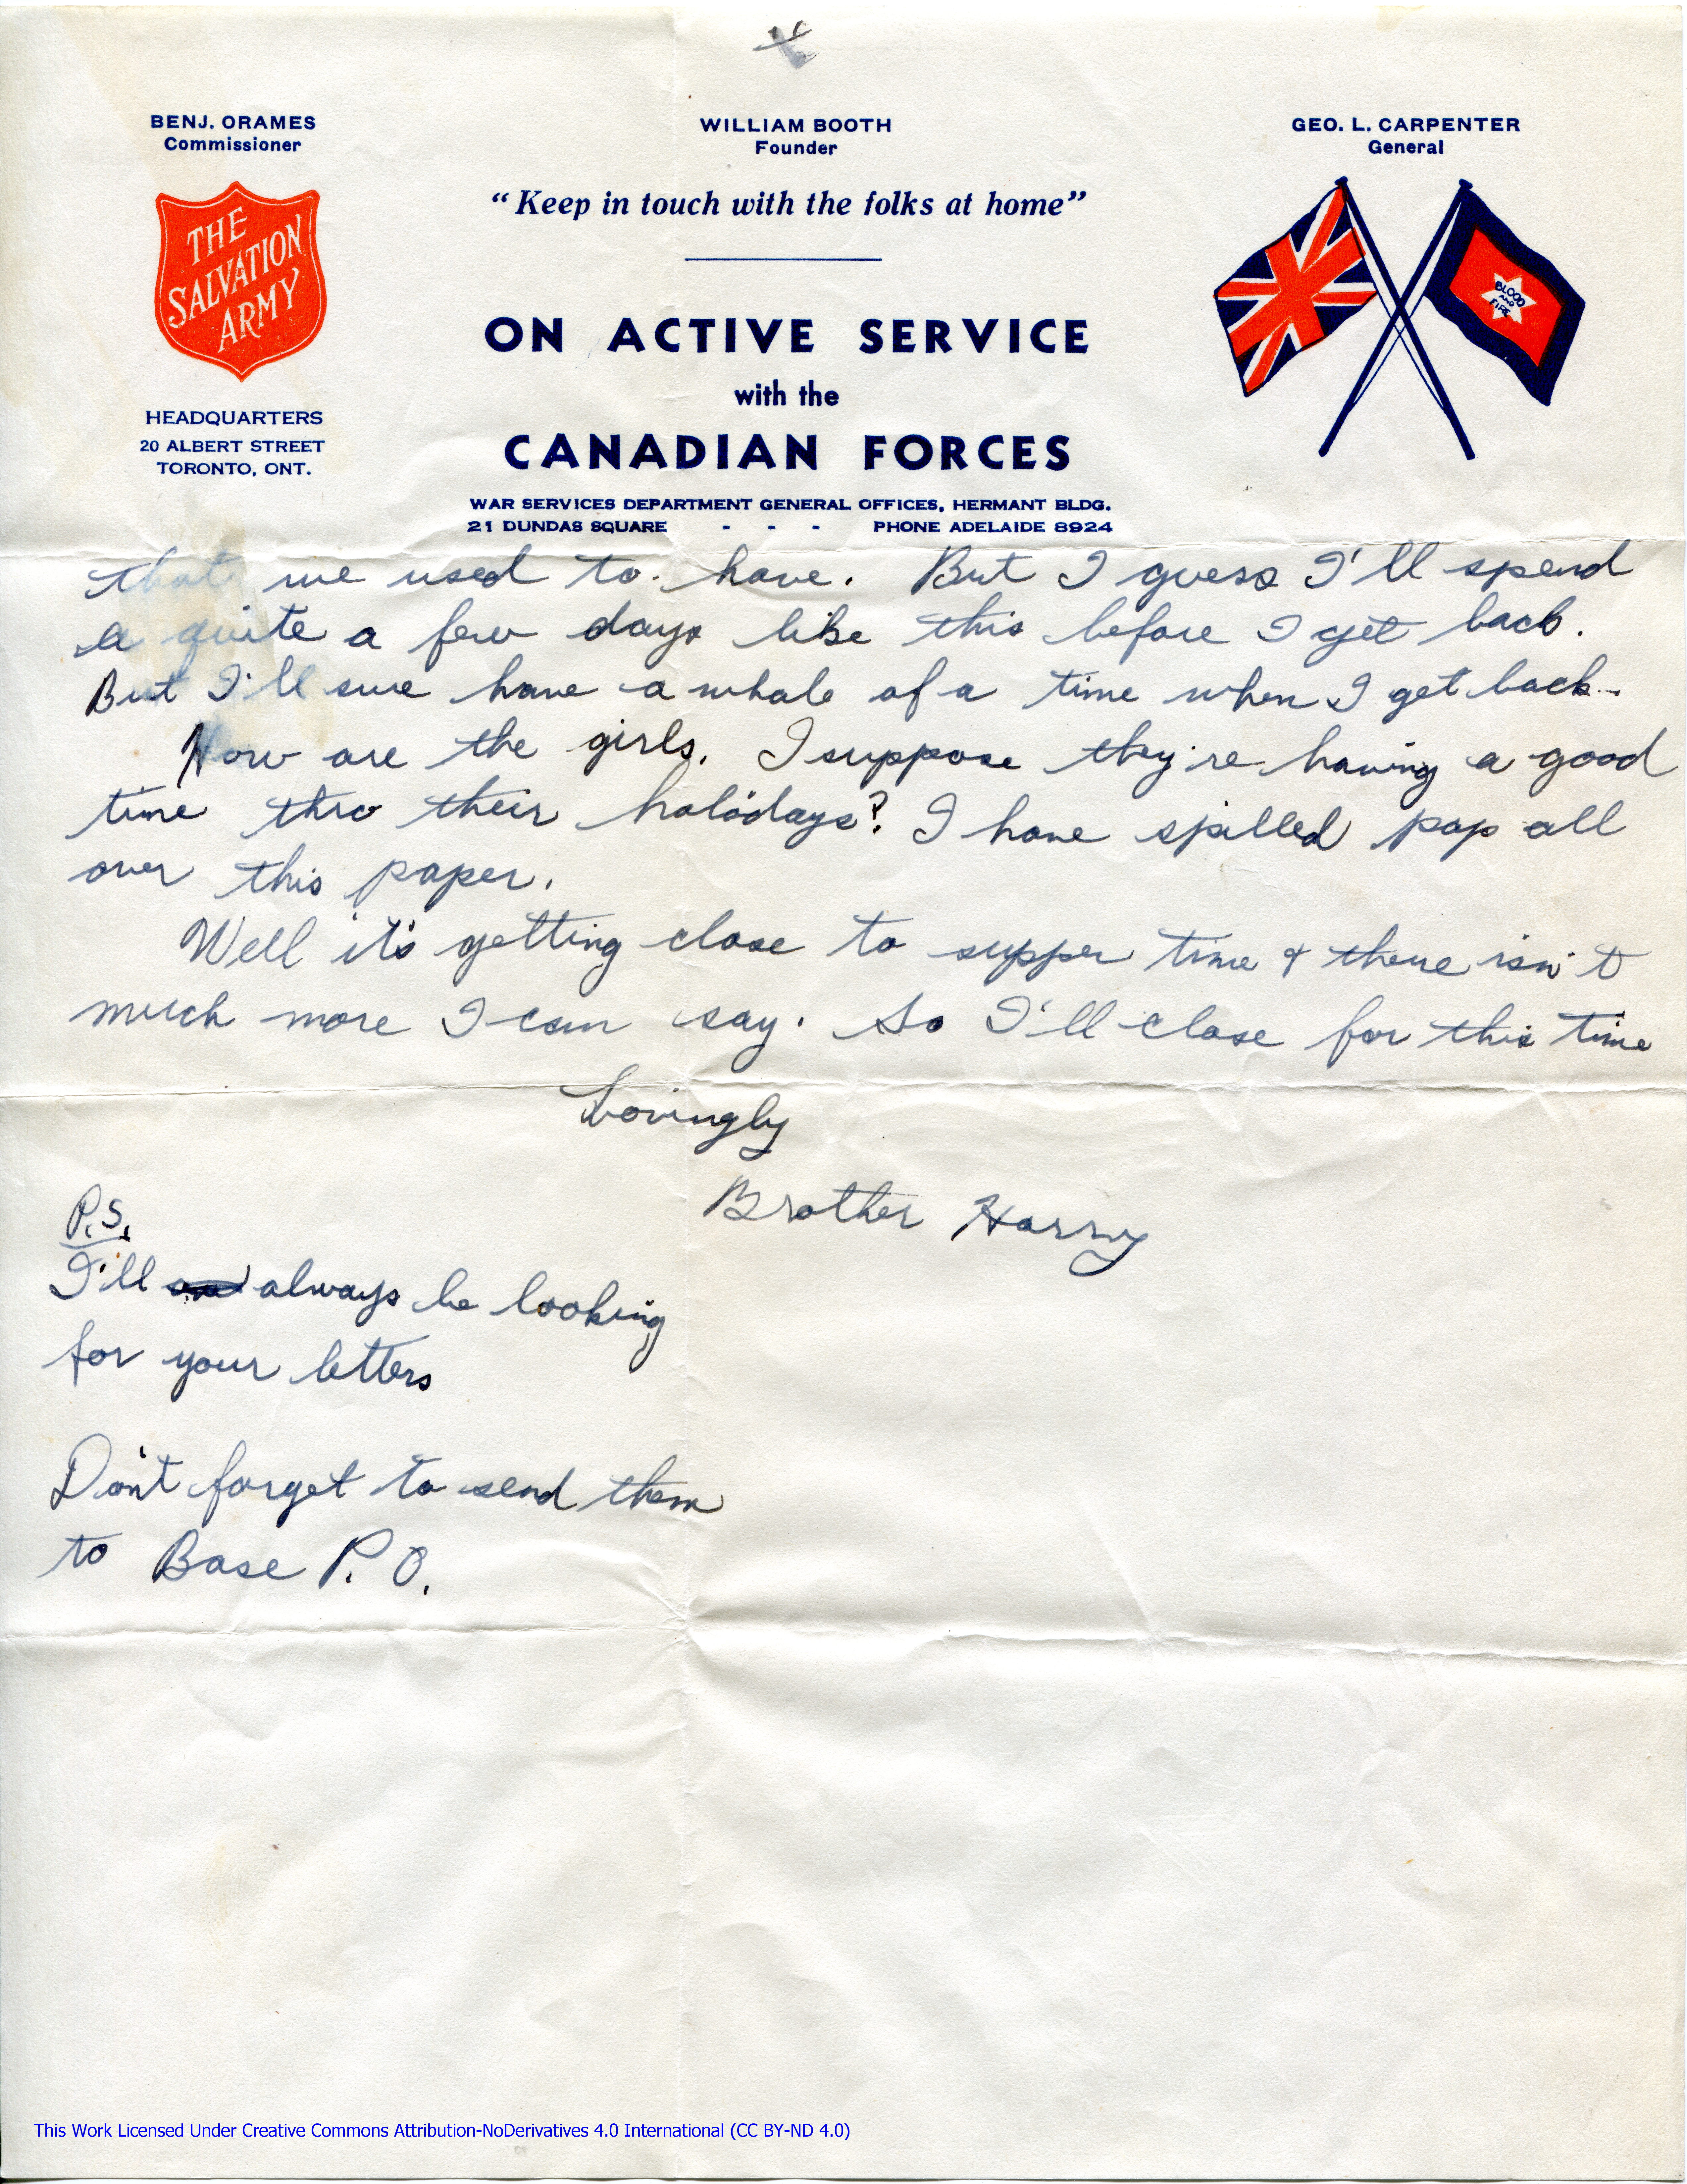 BENJ. ORAMES
Commissioner
WILLIAM BOOTH
Founder
GEO. L. CARPENTER
General
"Keep in touch with the folks at home"
THE
SALVATION
ARMY
BLOOD
AND
FIRE
ON ACTIVE SERVICE
with the
CANADIAN FORCES
HEADQUARTERS
20 ALBERT STREET
TORONTO, ONT.
WAR SERVICES DEPARTMENT GENERAL OFFICES, HERMANT BLDG.
21 DUNDAS SQUARE - - - PHONE ADELAIDE 8924
that we used to. have. But I guess I'll spend
a quite a few days like this before I get back.
But I'll sure have a whale of a time when I get back.
How are the girls. I suppose they're having a good
time thro their holidays? I have spilled pop all
over this paper.
Well it's getting close to supper time & there isn't
much more I can say. So I'll close for this time
Lovingly
Brother Harry
P.S.
I'll always be looking
for your letters
Don't forget to send them
to Base P.O.
This Work Licensed Under Creative Commons Attribution-NoDerivatives 4.0 International (CC BY-ND 4.0)